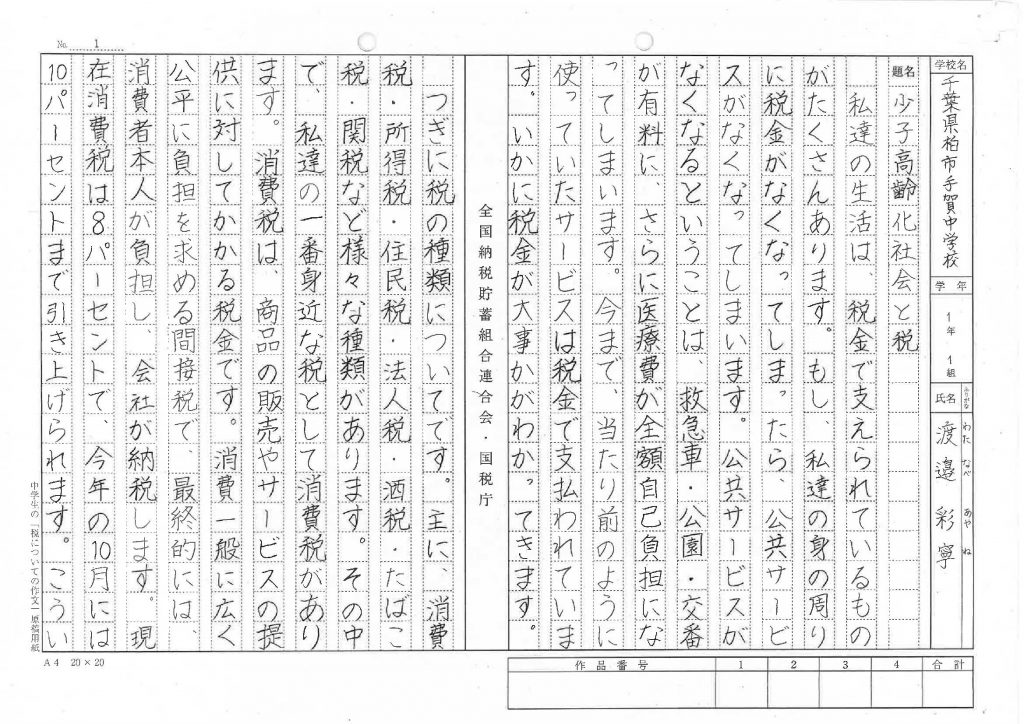 No. 1
学校名 千葉県柏市手賀中学校
学年 1年 1組
ふりがな わた なべ あや ね
氏名 渡邉 彩寧
題名 少子高齢化社会と税
私達の生活は、税金で支えられているもの
がたくさんあります。もし私達の身の周り
に税金がなくなってしまったら、公共サービ
スがなくなってしまいます。公共サービスが
なくなるということは救急車・公園・交番
が有料に、さらに医療費が全額自己負担にな
ってしまいます。今まで、当たり前のように
使っていたサービスは税金で支払われていま
す。いかに税金が大事かがわかってきます。
全国納税貯蓄組合連合会・国税庁
つぎに税の種類についてです。主に、消費
税・所得税・住民税・法人税・酒税・たばこ
税・関税など様々な種類があります。その中
で、私達の一番身近な税として消費税があり
ます。消費税は、商品の販売やサービスの提
供に対してかかる税金です。消費一般に広く
公平に負担を求める間接税で、最終的には、
消費者本人が負担し、会社が納税します。現
在消費税は8パーセントで、今年の10月には
10パーセントまで引き上げられます。こうい
中学生の「税についての作文」原稿用紙
A4 20×20
作品番号 1 2 3 4 合計